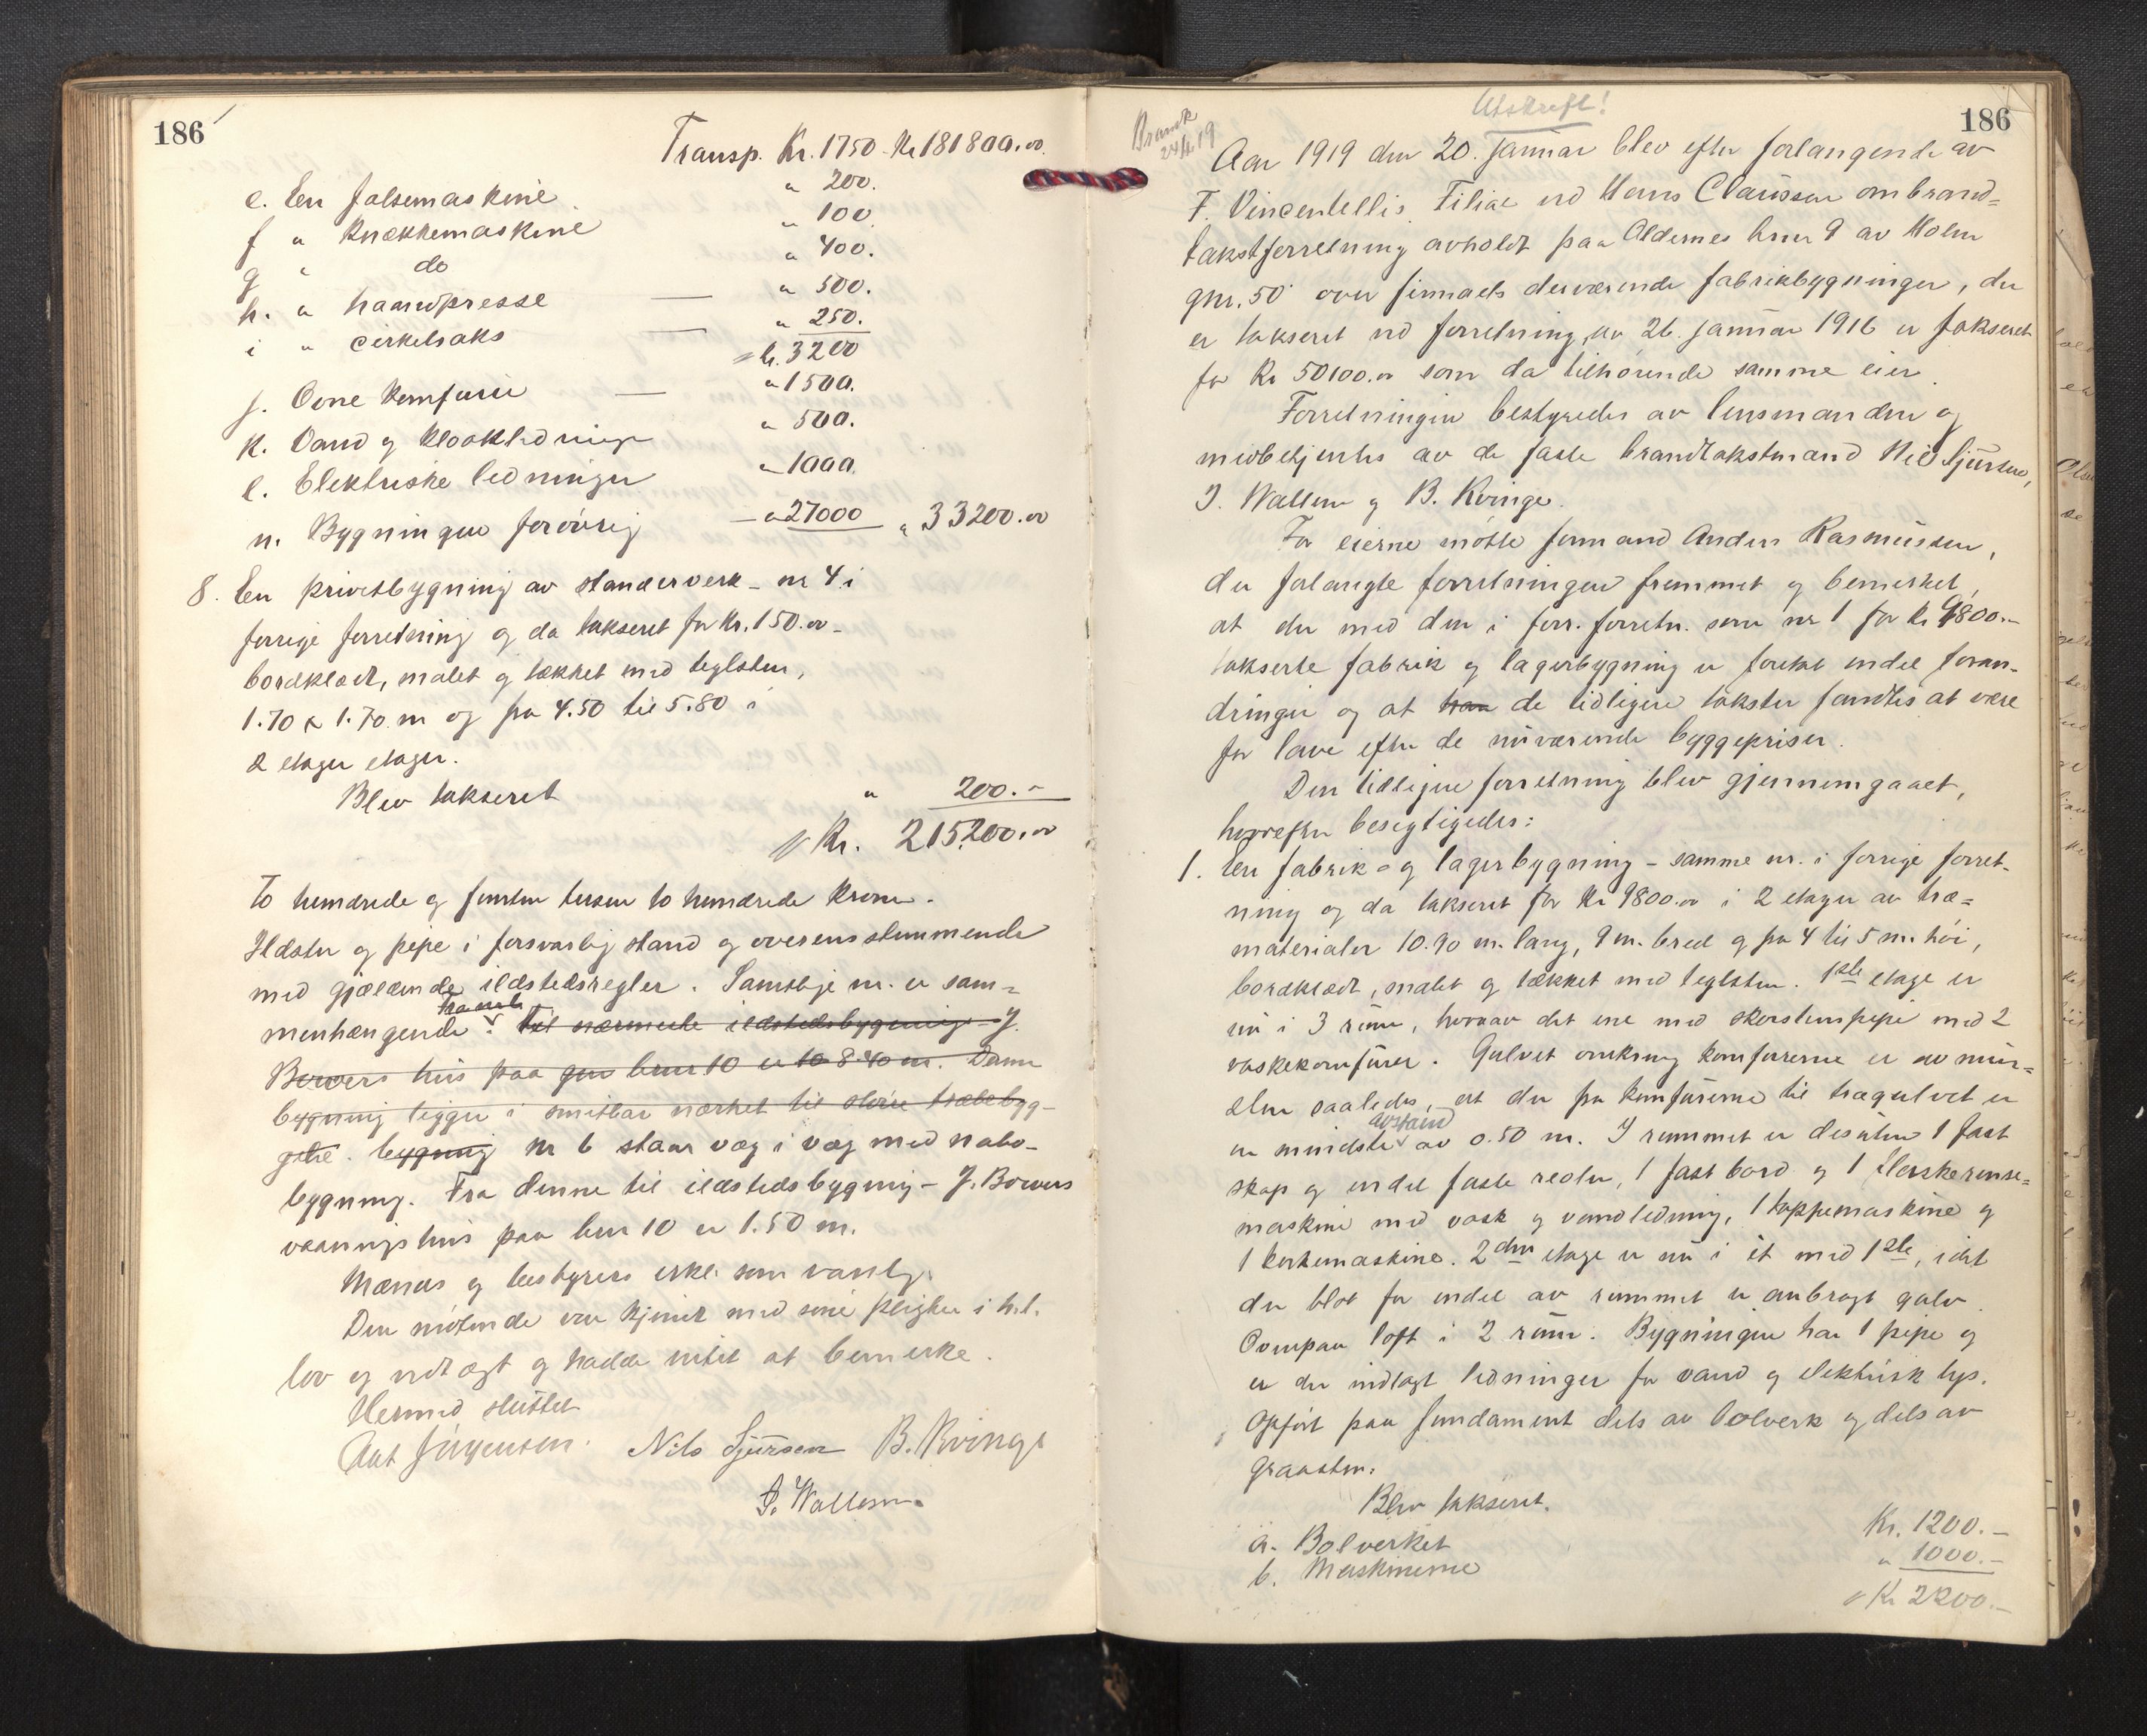 186
Transp. Kr. 1750 - Kr 181800.00
e. En falsemaskine „ 200.
f „ Knækkemaskine „ 100
g „ do „ 400.
h. „ haandpresse — „ 500.
i „ cirkelsaks — „ 250.
Kr. 3200
j. Ovne komfurer — „ 1500.
k. Vand og kloakledninger „ 500.
l. Elektriske ledninger „ 1000.
n. Bygningen forøvrig — „ 27000 „ 33200.00
8. En privetbygning av standerverk - nr 4 i
forrige forretning og da takseret for Kr. 150.00 -
bordklædt, malet og tækket med teglsten,
1.70 x 1.70 m og fra 4.50 til 5.80 i
2 etager etager.
Blev takseret „ 200.-
Kr. 215200.00
To hundrede og femten tusen to hundrede kroner.
Ildsteder og pipe i forsvarlig stand og overensstemmende
med gjældende ildstedsregler. Samtlige nr. er sam=
menhængende. Til nærmeste ildstedsbygning - J.
Bowers hus paa gnr bnr 10 er to 8.40 m. Denne
bygning ligger i smitbar nærhet til større træbebyg-
gelse. bygning Nr 6 staar væg i væg med nabo-
bygning. Fra denne til ildstedsbygning - J. Bowers
vaaningshus paa bnr 10 er 1.50 m.
Mænds og bestyrers erkl. som vanlig.
Den møtende var kjendt med sine pligter i h.t.
lov og vedtægt og hadde intet at bemerke.
Hermed sluttet
Ant Jørgensen. Nils Sjursen B. Kvinge
J. Wallem.
Utskrift!
186
24/4 19
Aar 1919 den 20. januar blev efter forlangende av
F. Vincentellis Filial ved Hans Claussen om brand=
takstforretning avholdt paa Aldernes bnr 9 av Holm
gnr. 50 over firmaets derværende fabrikbygninger, der
er takseret ved forretning av 26. januar 1916 er takseret
for Kr 50100.00 som da tilhørende samme eier.
Forretningen bestyredes av lensmanden og
medbetjentes av de faste brandtakstmænd Nils Sjursen,
J. Wallem og B. Kvinge.
For eierne møtte formand Anders Rasmussen,
der forlangte forretningen fremmet og bemerket,
at der med den i forr. forretn. som nr 1 for Kr 9800.-
takserte fabrik og lagerbygning er foretat endel foran-
dringer og at han de tidligere takster fandtes at være
for lave efter de nuværende byggepriser.
Den tidligere forretning blev gjennemgaaet,
hvorefter besigtigedes:
1. En fabrik- og lagerbygning - samme nr. i forrige forret-
ning og da takseret for Kr 9800.00 i 2 etager av træ=
materialer 10.90 m. lang, 9 m. bred og fra 4 til 5 m. høi,
bordklædt, malet og tækket med teglsten. 1ste etage er
nu i 3 rum, hvorav det ene med skorstenspipe med 2
vaskekomfurer. Gulvet omkring komfurerne er av mur=
sten saaledes, at der fra komfurerne til trægulvet er
en mindste avstand av 0.50 m. I rummet er desuten 1 fast
skap og endel faste reoler, 1 fast bord og 1 flaskerense=
maskine med vask og vandledning, 1 tappemaskine og
1 korkemaskine. 2den etage er nu i ét med 1ste, idet
der blot for endel av rummet er anbragt gulv.
Ovenpaa loft i 2 rum. Bygningen har 1 pipe og
er der indlagt ledninger for vand og elektrisk lys.
Opført paa fundament dels av bolverk og dels av
graasten.
Blev takseret.
a. Bolverket Kr. 1200.-
b. Maskinerne „ 1000.-
Kr 2200.-